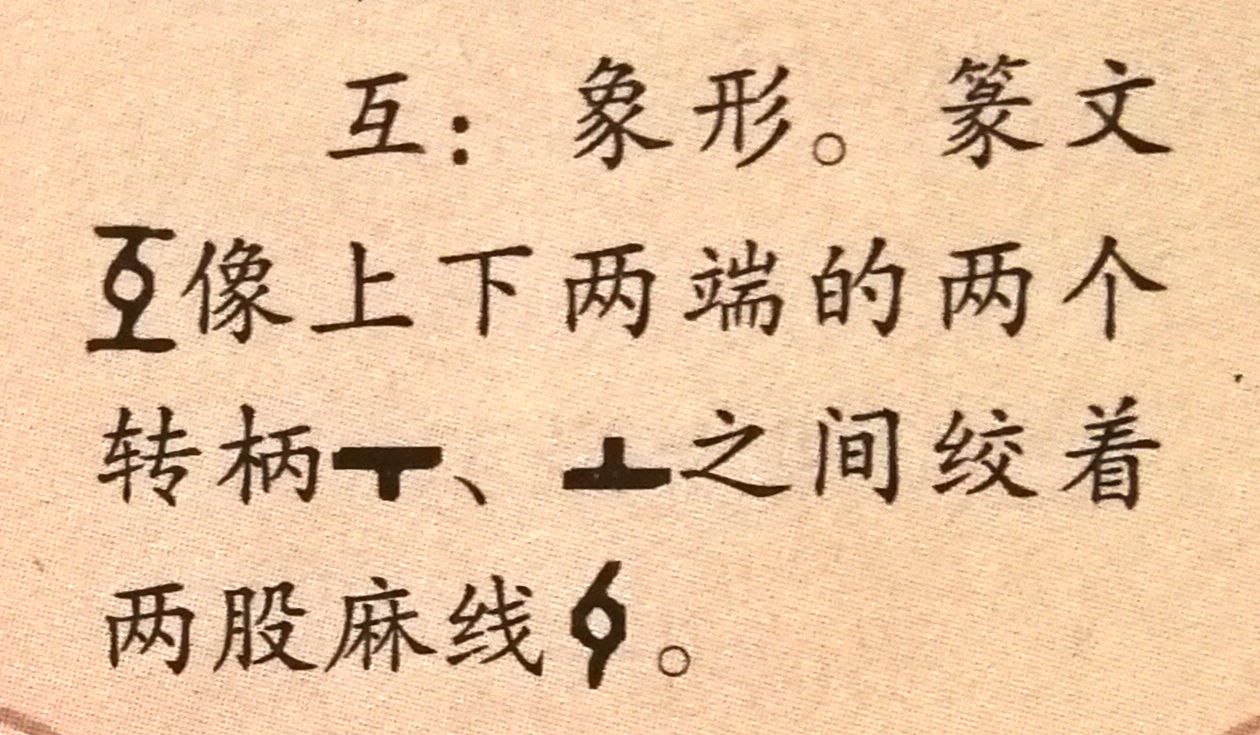 互：象形。篆文
像上下两端的两个
转柄、之间绞着
两股麻线。